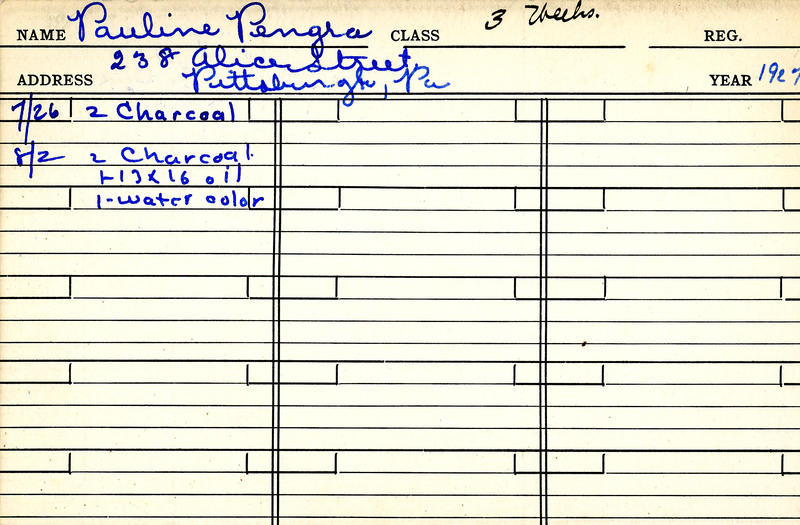 NAME Pauline Pengra CLASS 3 Weeks. REG.
238 Alice Street,
ADDRESS Pittsburgh, Pa YEAR 1927
7/26 2 Charcoal
8/2 2 Charcoal.
1-13x16 oil
1-water color